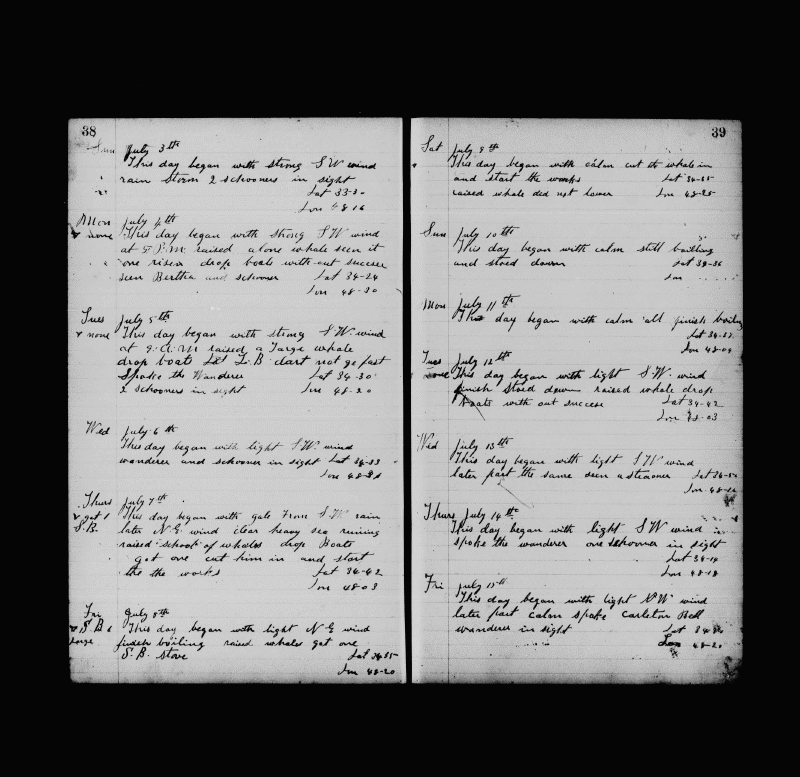 38
Sun July 3th
This day began with strong S W wind
rain Storm 2 schooners in sight
Lat 33-30
Lon 48 16
Mon July 4th
none This day began with strong S W wind
at 5 P.M. raised a lone whale seen it
one risen drop boats with-out succese
seen Bertha and schooner Lat 34-24
Lon 48-30
Tues July 5th
none This day began with strong S W. wind
at 9. A.M raised a Large whale
drop boats B dart not go fast
Spoke the Wanderer Lat 34-30
2 schooners in sight Lon 48-20
Wed July 6th
This day began with light S W. wind
wanderer and schooner in sight Lat 34-33
Lon 48-31
Thurs July 7th
got 1 This day began with gale From S.W rain
S.B. later N E wind clear heavy sea runing
raised school of whales drop Boats
got one cut him in and start
the the works Lat 34-42
Lon 48-03
Fri July 8th
S.B This day began with light N E wind
large finish boiling raised whales got one
S.B. stove Lat 34-35
Lon 48-20
39
Sat July 9th
This day began with calm cut the whale in
and start the works Lat 34-35
raised whale did not lower Lon 48-25
Sun July 10th
This day began with calm still boiling
and stoed down Lat 34-36
Lon
Mon July 11th
This day began with calm all finish boiling
Lat 34-33
Lon 48-09
Tues July 12th
none This day began with light S.W. wind
finish stoed down raised whale drop
boats with out succese Lat 34-42
Lon 48-03
Wed July 13th
This day began with light S W wind
later part the same seen a steamer Lat 34-50
Lon 48-12
Thurs July 14th
This day began with light S W wind
spoke the wanderer one schooner in sight
Lat 34-14
Lon 48-18
Fri July 15th
This day began with light N W wind
later part calm spoke Carleton Bell
wanderer in sight Lat 34
Lon 48-20